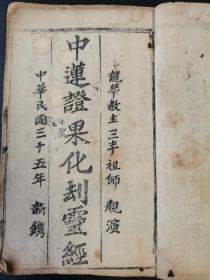 龍華教主三李祖師 親演
中蓮證果化刦靈經
中華民國三十五年 新鐫